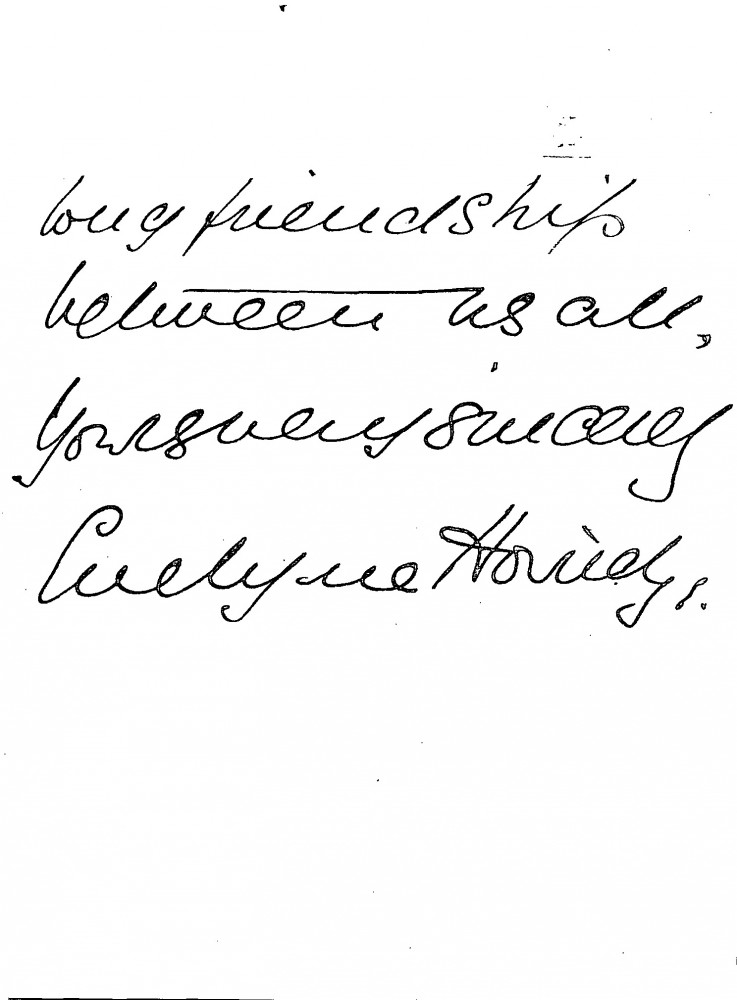 long friendship
between us all,
Yours very sincerely
Evelyne